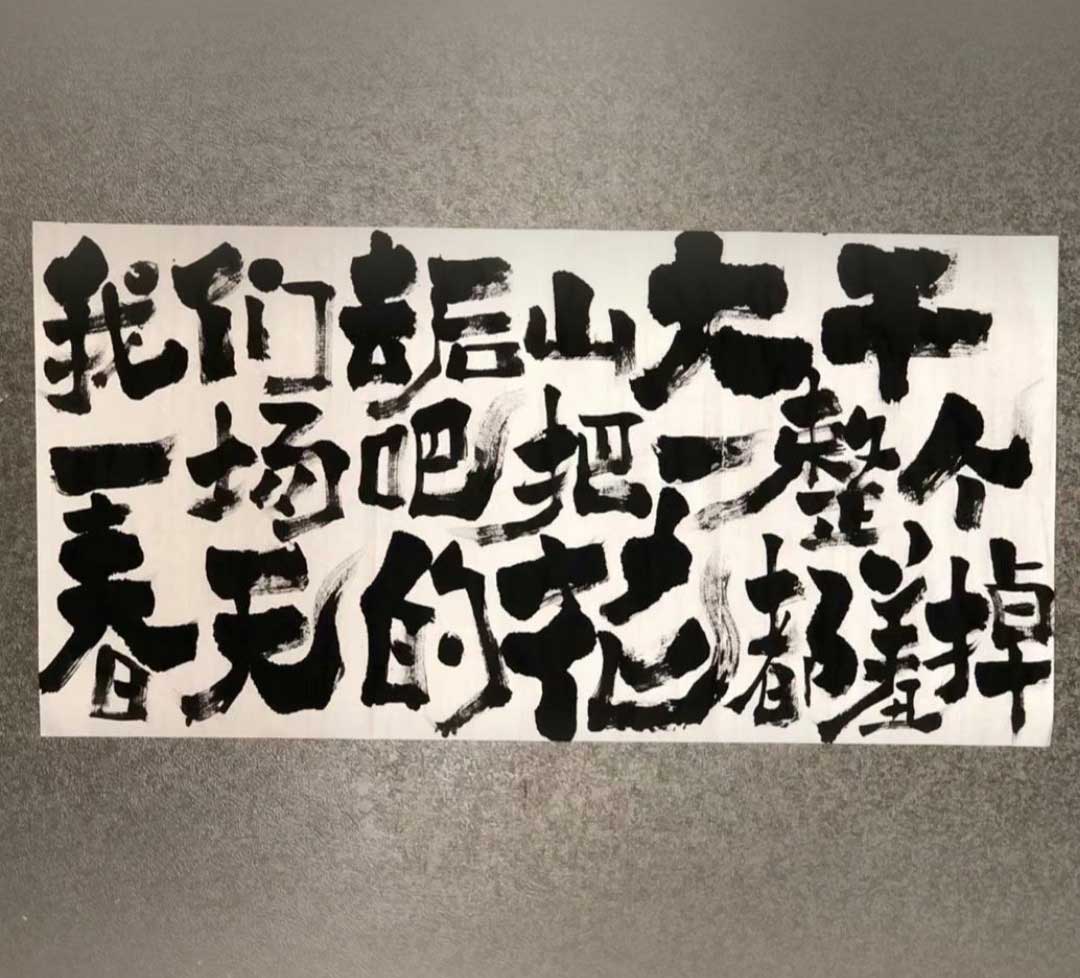 我们去后山大干
一场吧把一整个
春天的花都羞掉